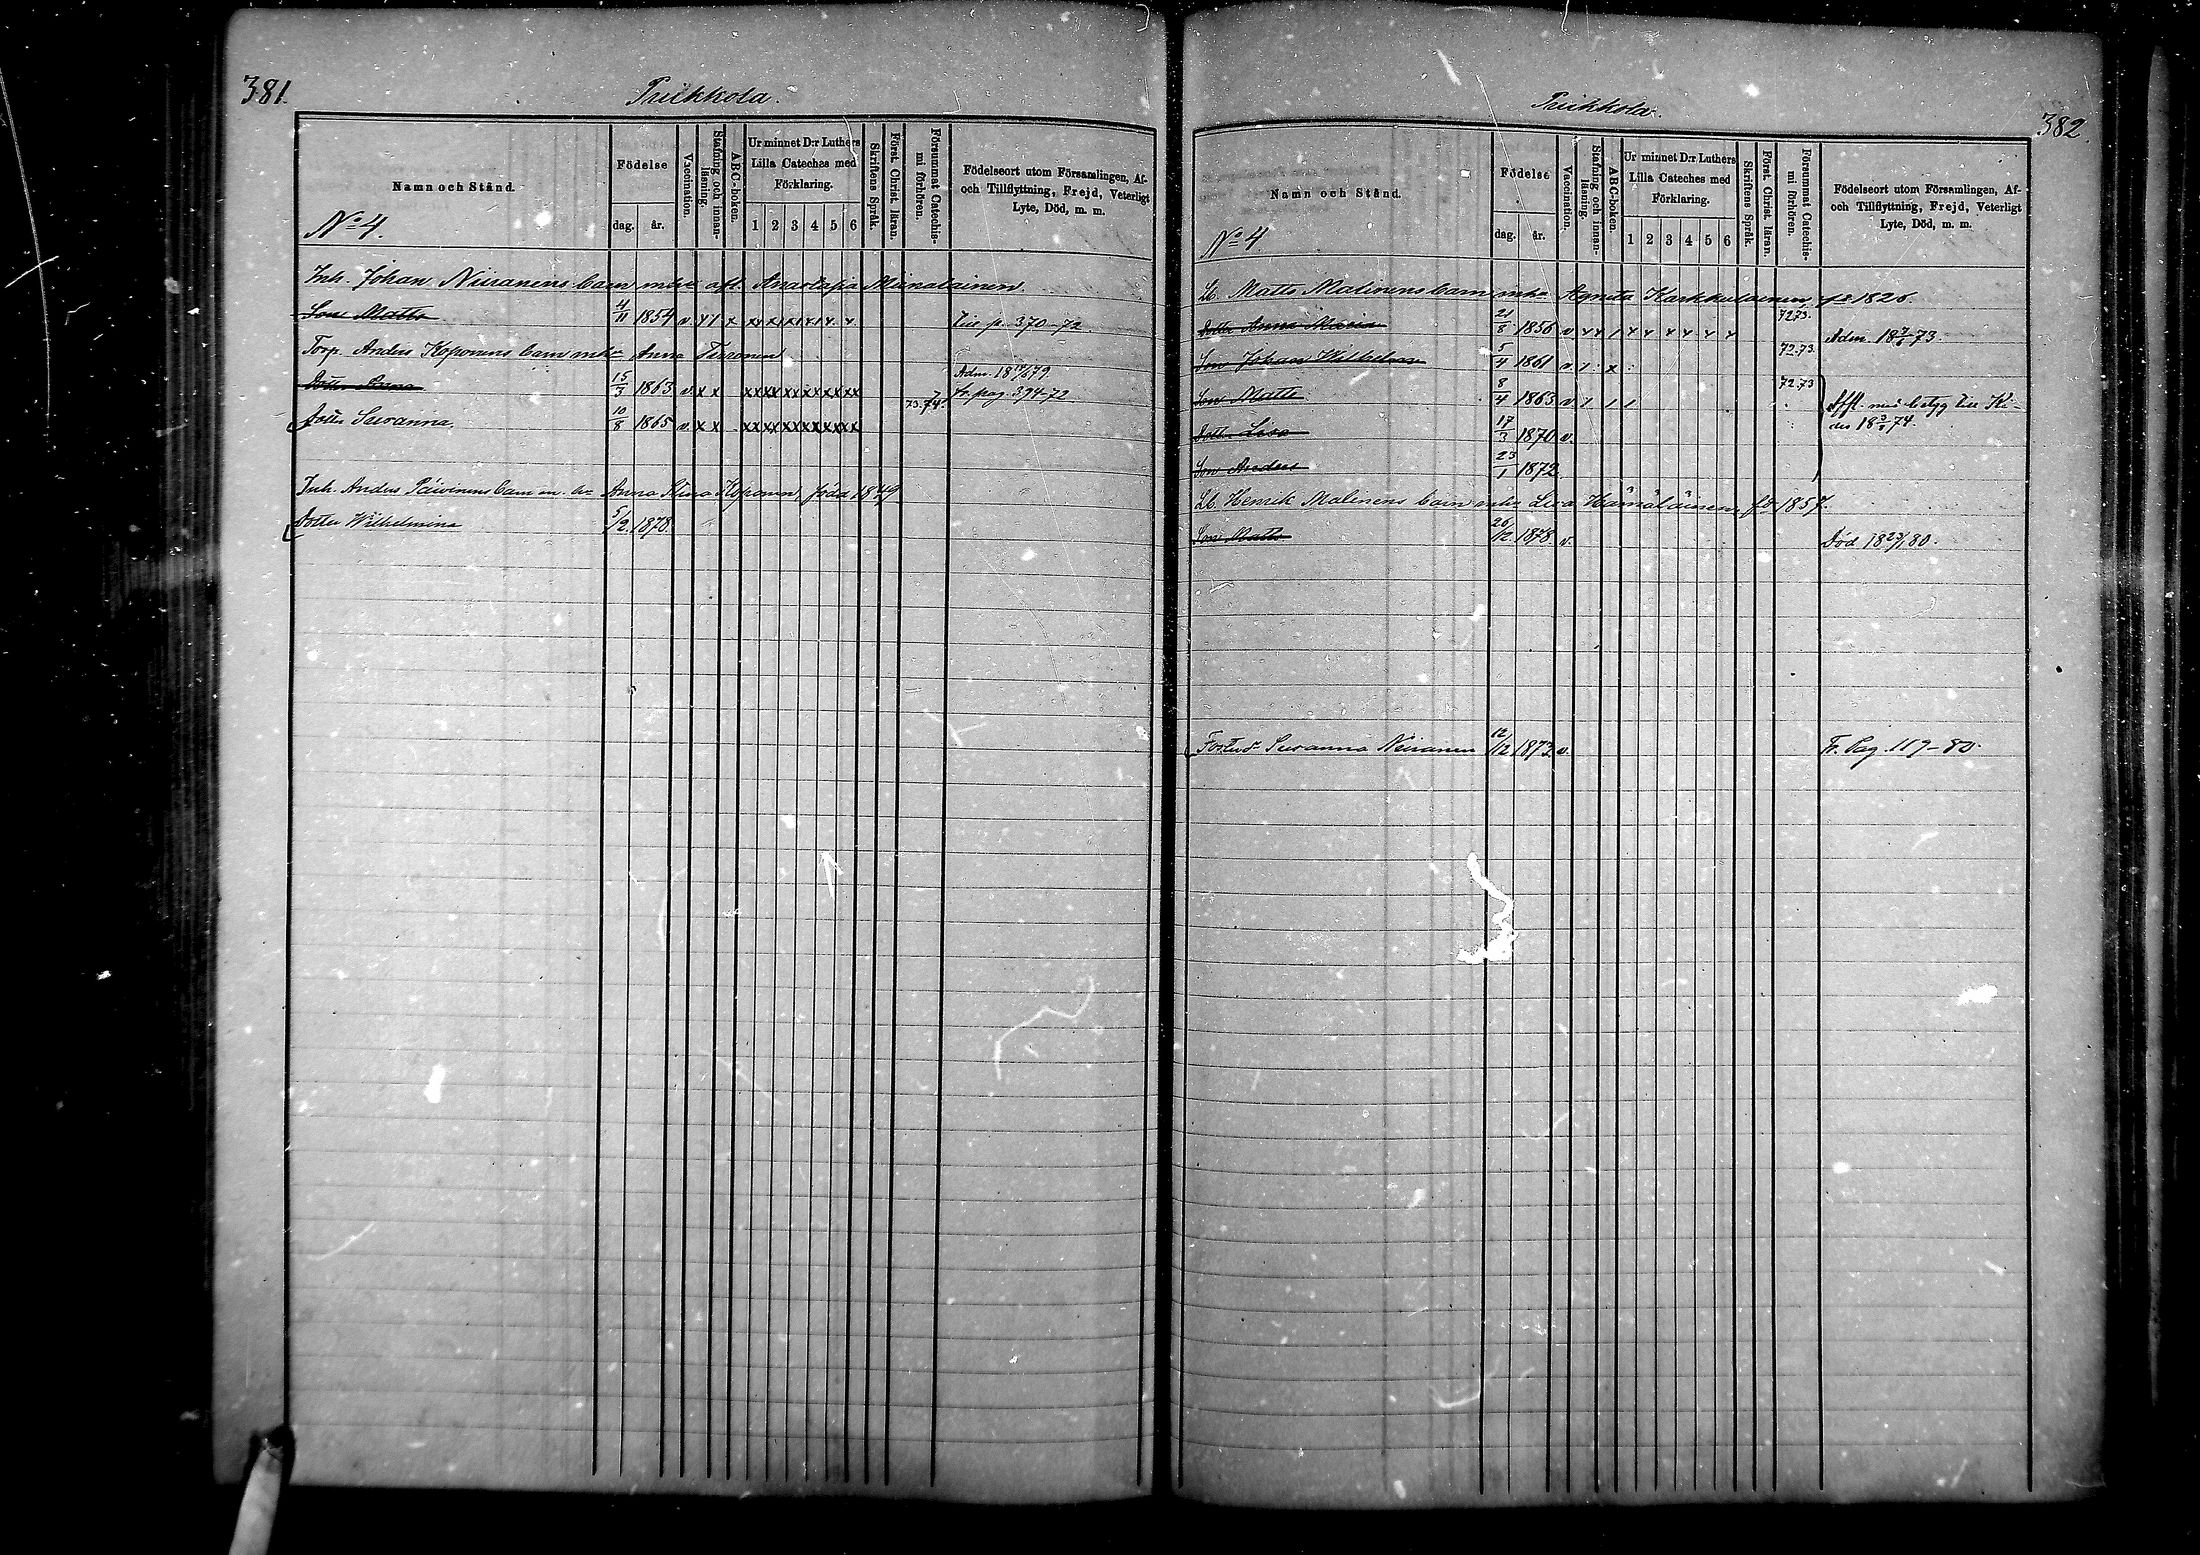 381.
Puikkola.
Namn och Stånd.
Födelse
dag. år.
Vaccination.
Stafning och innanläsning.
ABC-boken.
Ur minnet D:r Luthers Lilla Cateches med Förklaring.
1 2 3 4 5 6
Skriftens Språk.
Först. Christ. läran.
Försummat Catechismi förhören.
Födelseort utom Församlingen, Af- och Tillflyttning, Frejd, Veterligt Lyte, Död, m. m.
No 4.
Inh. Johan Niiranens barn m. hu afl. Anastasia
Son Matts 4/11 1854 v. x 1 x x x x x x x Till p. 370-72
Torp. Anders Koponens barn m hu Anna
Dotter Anna 15/3 1863 v. x x xx xx xx xx xx xx Adm. 79 Fr. pag. 394-72
Dotter Susanna. 10/8 1865 v. x x xx xx xx xx xx xx 73.74.
Inh. Anders Päivinens barn m. hu Anna Stina Koponen född 1849
Dotter Wilhelmina 5/2 1878.
382.
Puikkola.
Namn och Stånd.
Födelse
dag. år.
Vaccination.
Stafning och innanläsning.
ABC-boken.
Ur minnet D:r Luthers Lilla Cateches med Förklaring.
1 2 3 4 5 6
Skriftens Språk.
Först. Christ. läran.
Försummat Catechismi förhören.
Födelseort utom Församlingen, Af- och Tillflyttning, Frejd, Veterligt Lyte, Död, m. m.
No 4
Lb. Matts Malinens barn m hu Agneta Karkkulainen fö 1826.
Dotter Anna Maria 21/8 1856 v. x x 1 x x x x x x 72.73. Adm. 73
Son Johan Wilhelm 5/4 1861 v. 1 x 72.73.
Son Matts 8/4 1863 v 1 1 1 72.73 Affl. med betyg till
Dotter Lisa 17/3 1870 v. 74.
Son Anders 23/1 1872
Lb. Henrik Malinens barn m hu Lisa Hämäläinen fö 1857.
Son Matts 26/12 1878. v. Död 18 23/1 80.
Fosterdr Susanna Niiranen 12/12 1873 v. Fr. Pag. 119-80.